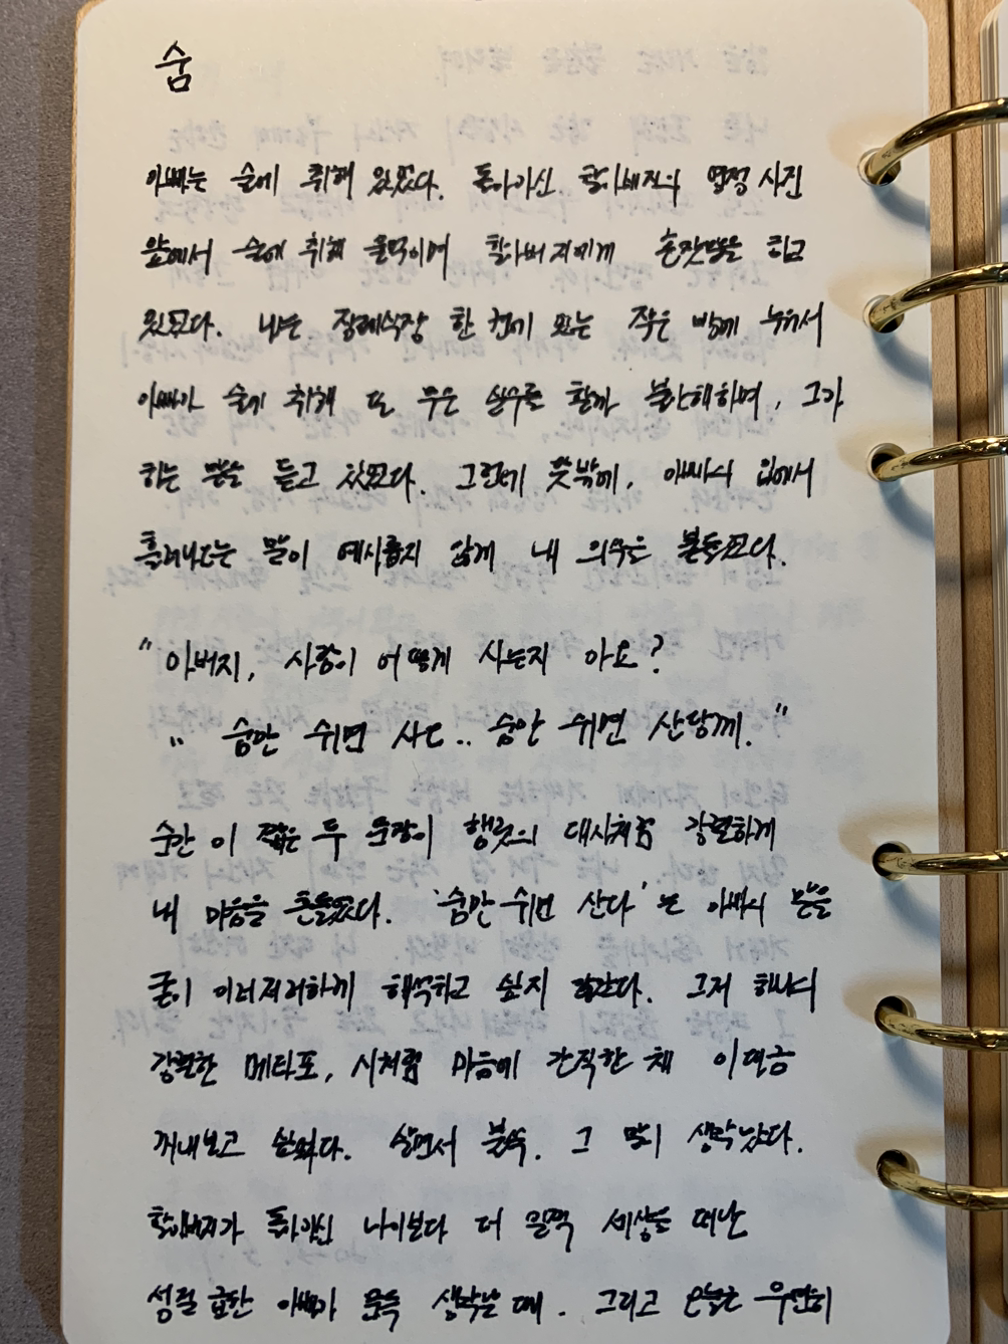 숨
아빠는 술에 취해 있었다. 돌아가신 할아버지의 영정 사진
앞에서 술에 취해 울먹이며 할아버지에게 혼잣말을 하고
있었다. 나는 장례식장 한 켠에 있는 작은 방에 누워서
아빠가 술에 취해 또 무슨 실수를 할까 불안해하며, 그가
하는 말을 듣고 있었다. 그런데 뜻밖에, 아빠의 입에서
흘러나오는 말이 예사롭지 않게 내 의식을 붙들었다.
"아버지, 사람이 어떻게 사는지 아요?
" 숨만 쉬면 사도.. 숨만 쉬면 산당께."
순간 이 짧은 두 문장이 햄릿의 대사처럼 강렬하게
내 마음을 흔들었다. '숨만 쉬면 산다'는 아빠의 말을
굳이 이러저러하게 해석하고 싶지 않았다. 그저 하나의
강렬한 메타포, 시처럼 마음에 간직한 채 이따금
꺼내보고 싶었다. 살면서 불쑥. 그 말이 생각났다.
할아버지가 돌아가신 나이보다 더 일찍 세상을 떠난
성질 급한 아빠가 문득 생각날 때. 그리고 오늘은 우연히